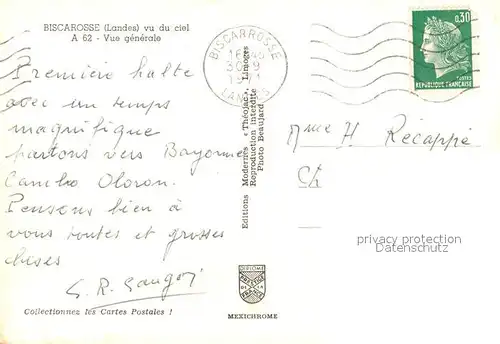 BISCAROSSE (Landes) vu du ciel
A 62 - Vue générale
Première halte
avec un temps
magnifique
partons vers Bayonne
Cambo Oloron.
Pensons bien à
vous toutes et grosses
bises
Collectionnez les Cartes Postales !
Editions Modernes « Théojac », Limoges
Reproduction interdite
Photo Beaujard
DIPLOME
PRESTIGE
DE LA
FRANCE
MEXICHROME
BISCARROSSE
LANDES
0,30
REPUBLIQUE FRANÇAISE
Mme H Recappé
privacy protection
watermark